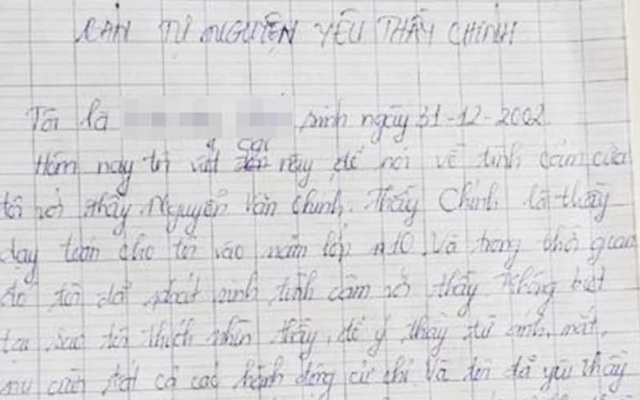 BẢN TỰ NGUYỆN YÊU THẦY CHINH
Tôi là sinh ngày 31-12-2002
Hôm nay tôi viết cái này để nói về tình cảm của
tôi với thầy Nguyễn Văn Chinh. Thầy Chinh là thầy
dạy toán cho tôi vào năm lớp 10. Và trong thời gian
đó tôi đã phát sinh tình cảm với thầy. Không biết
tại sao tôi thích nhìn thầy, để ý thầy từ ánh mắt,
nụ cười tất cả các hành động cử chỉ. Và tôi đã yêu thầy